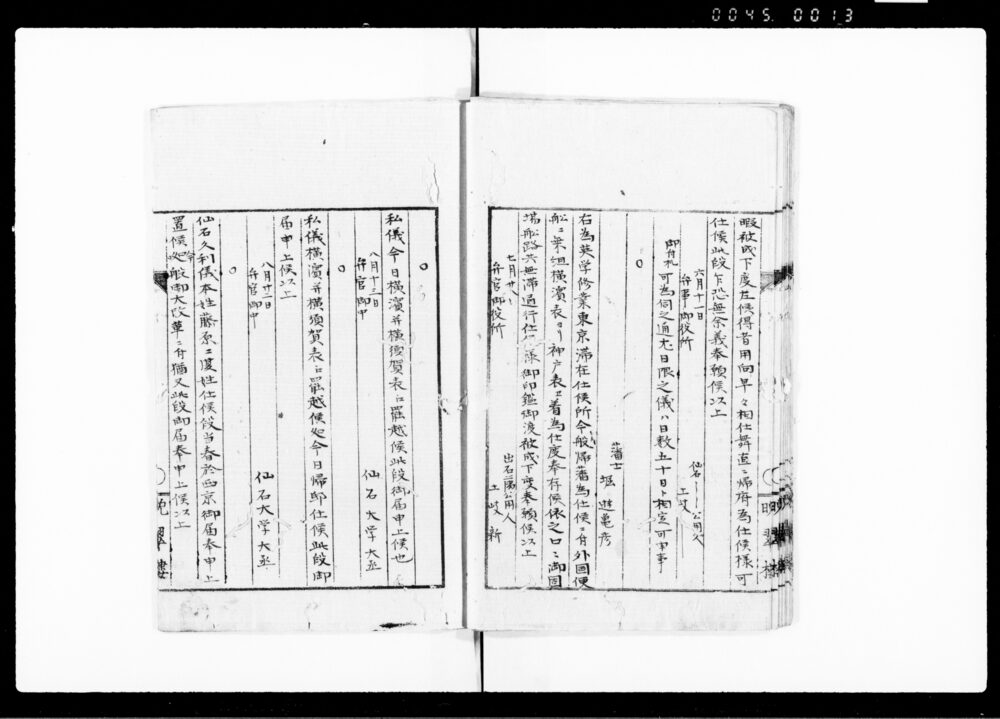 0045. 0013
暇被成下度左候得者用向早々相仕舞直ニ帰府為仕候様可
仕候此段乍恐無余義奉願候以上
六月十一日
弁事御役所
仙石
公用人
土岐
御附札可為伺之通尤日限之儀ハ日数五十日ト相定可申事
○
藩士
堀遊亀彦
右為英学修業東京滞在仕候所今般帰藩為仕候ニ付外国便
船ニ乗組横濱表ヨリ神戸表エ着為仕度奉存候依之口ニ御固
場船路共無滞通行仕候様御印鑑御渡被成下度奉願候以上
七月廿八
弁官御役所
出石藩公用人
土岐新
○
私儀今日横濱并横須賀表江罷越候此段御届申上候也
八月十三日
弁官御中
仙石大学大丞
○
私儀横濱并横須賀表江罷越候処今日帰邸仕候此段御
届申上候以上
八月廿二日
弁官御中
仙石大学大丞
○
仙石久利儀本姓藤原ニ復姓仕候段当春於西京御届奉申上
置候処今般御大改革ニ付猶又此段御届奉申上候以上